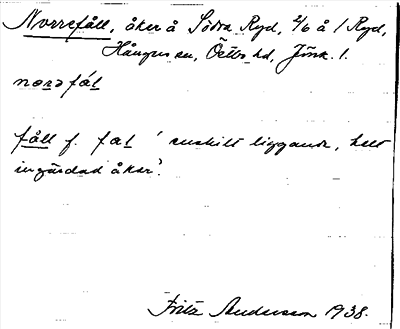 Norrefåll, åker å Södra Ryd, 2/6 å 1 Ryd,
Hångers sn, Östbo hd, Jönk. l.
nordfål
fåll f. fal ' enskilt liggande, helt
ingärdad åker'.
Fritz Andersson 1938.